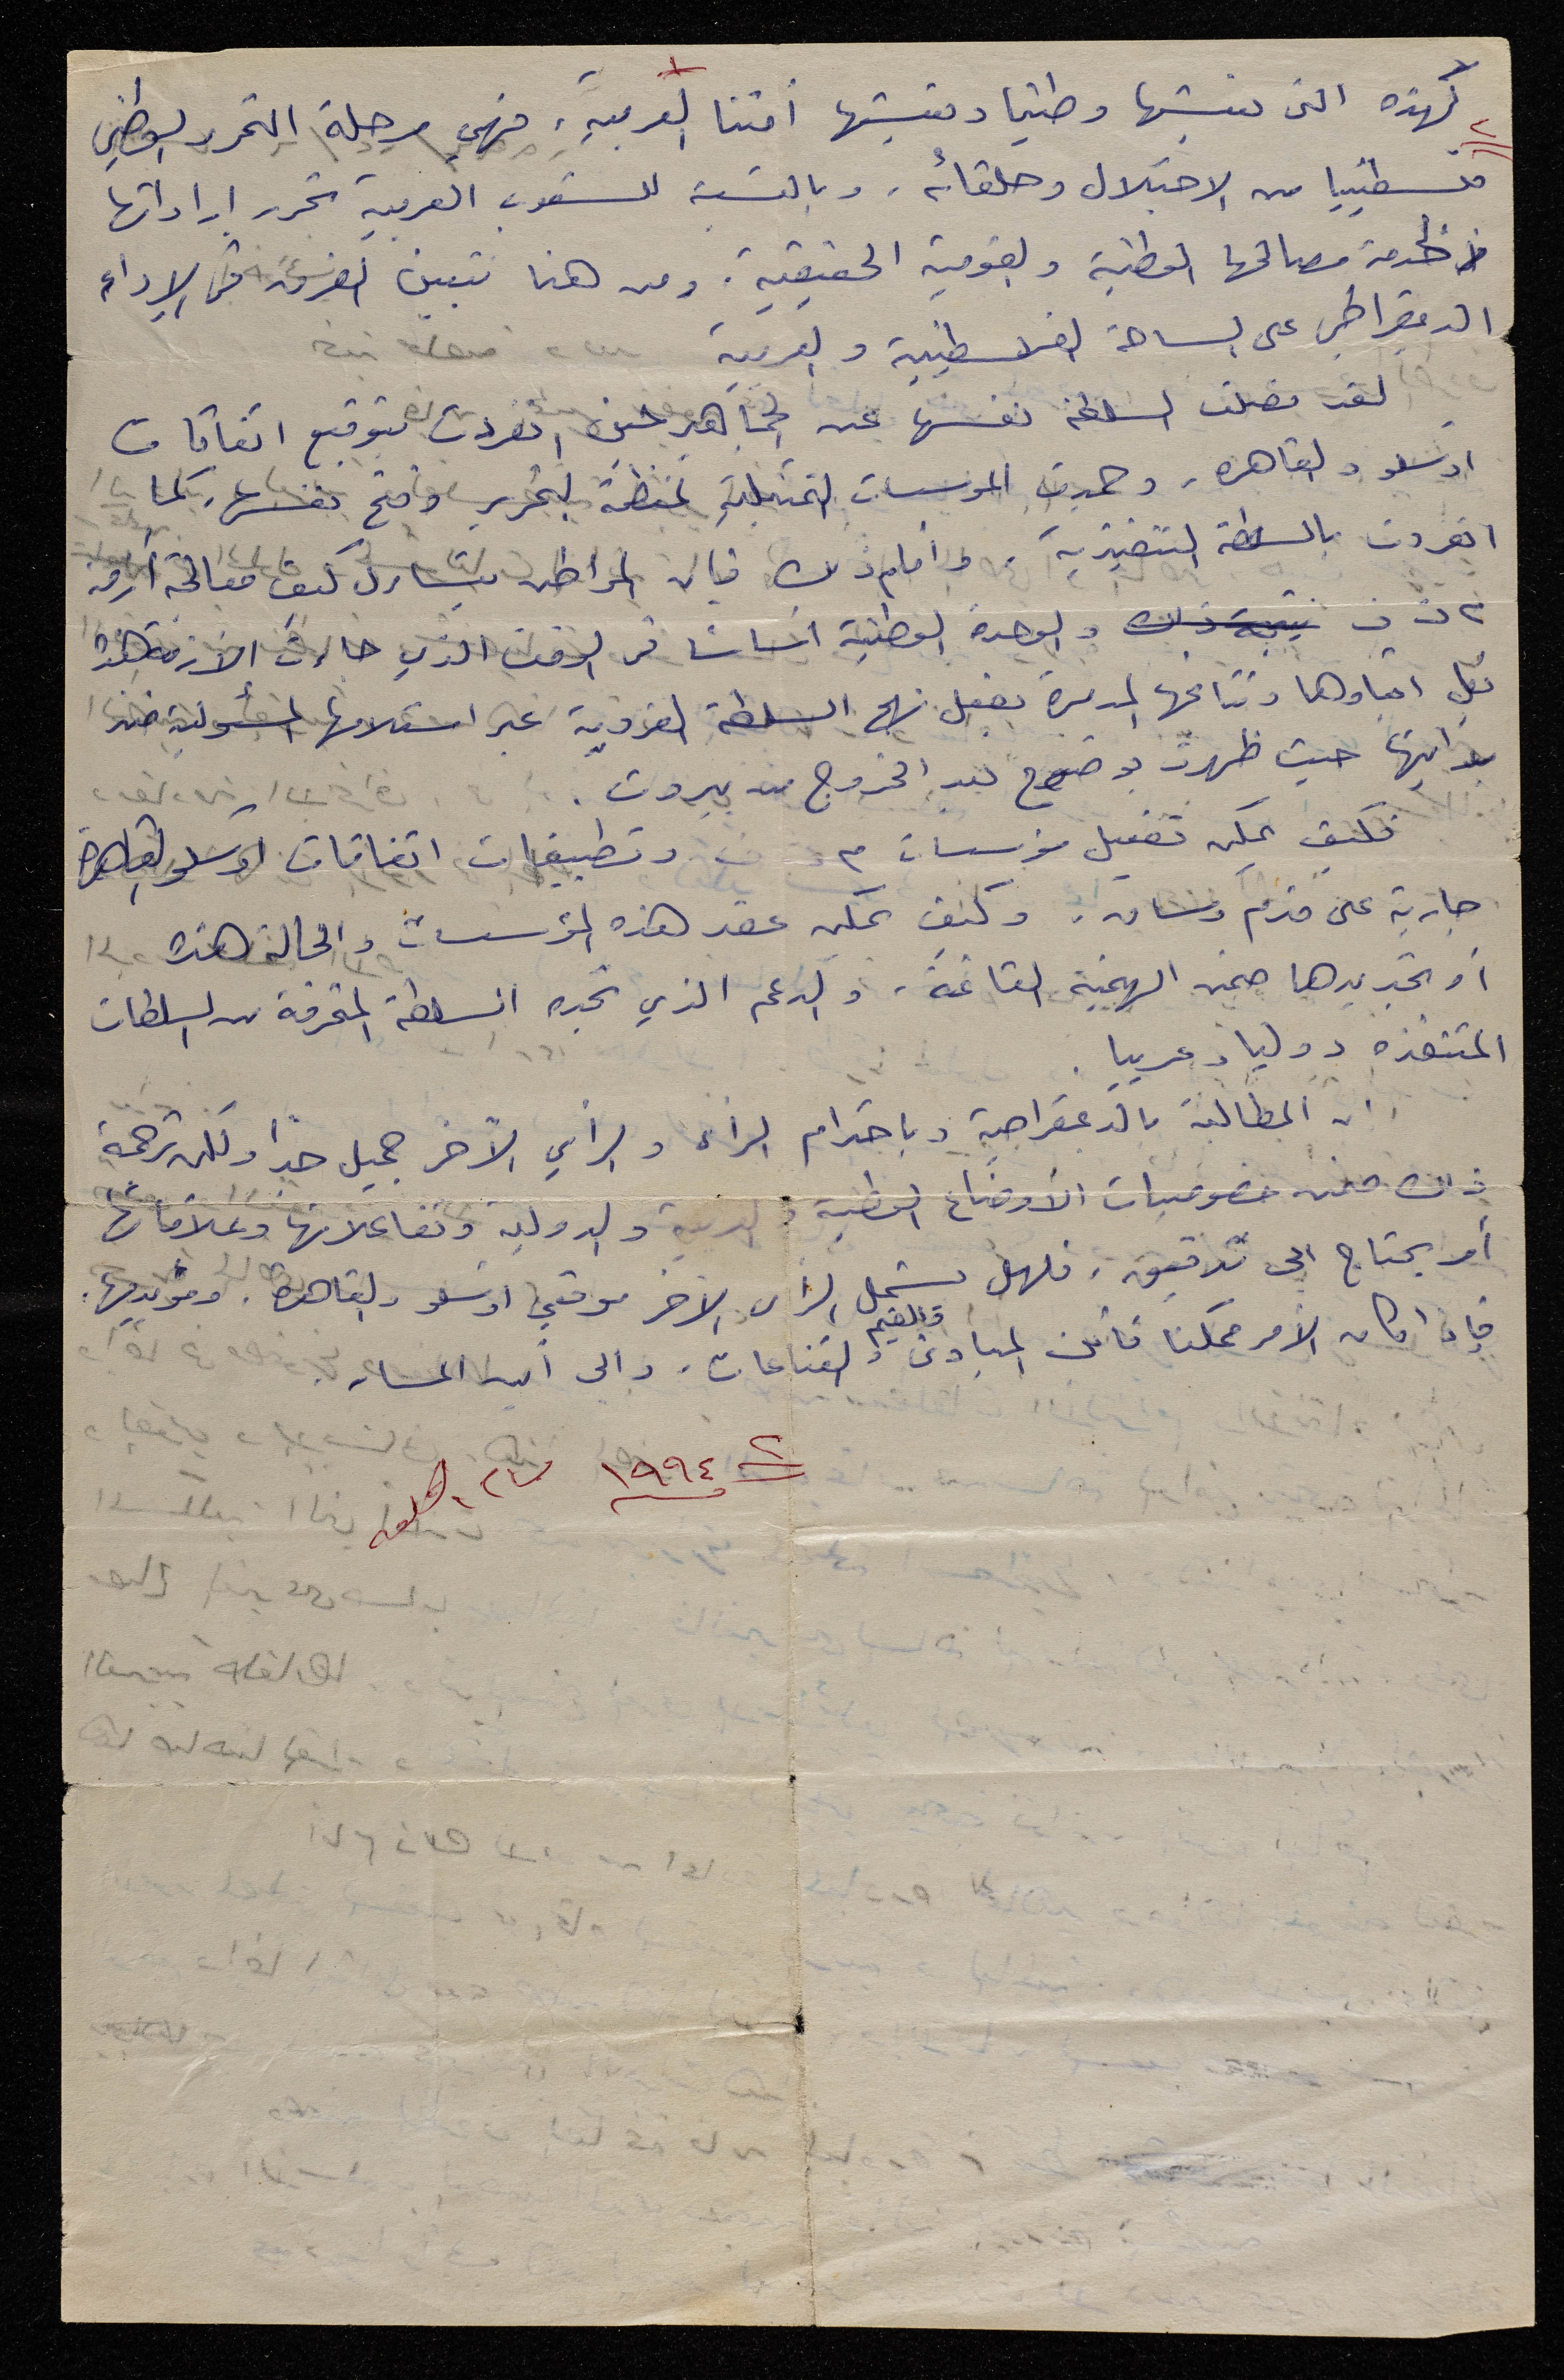 ٢
كهذه التي نعيشها وطنيا وتعيشها أمتنا العربية، فهي مرحلة التحرر الوطني
فلسطينيا من الاحتلال وحلفائه، وبالنسبة للشعوب العربية تحرر اراداتها
لخدمة مصالحها الوطنية والقومية الحقيقية. ومن هنا نتبين الفرق في الاداء
الديمقراطي على الساحة الفلسطينية والعربية
لقد فصلت السلطة نفسها عن الجماهير حين انفردت بتوقيع اتفاقات
اوسلو والقاهرة، وهمشت المؤسسات التمثيلية لمنظمة التحرير وفتح نفسها، كما
انفردت بالسلطة التنفيذية، وأمام ذلك فإن المواطن يتساءل كيف معالجة أزمة
م ت ف نتيجة ذلك والوحدة الوطنية أساسا في الوقت الذي جاءت الازمة هذه
بكل أبعادها ونتائجها المدمرة بفعل نهج السلطة الفردية عبر استلامها المسئولية منذ
بداياتها حيث ظهرت بوضوح بعد الخروج من بيروت.
فكيف يمكن تفعيل مؤسسات م ت ف وتطبيقات اتفاقات اوسلو والقاهرة
جارية على قدم وساق. وكيف يمكن عقد هذه المؤسسات والحالة هذه
أو تجديدها ضمن الهيمنة القائمة، والدعم الذي تجده السلطة المنحرفة من السلطات
المتنفذه دوليا وعربيا.
ان المطالبة بالديمقراطية وباحترام الرأي والرأي الآخر جميل جدا ولكن ترجمة
ذلك ضمن خصوصيات الأوضاع الوطنية والعربية والدولية وتفاعلاتها وعلاقاتها
أمر يحتاج الى تدقيق، فهل يشمل الرأي الاخر موقعي اوسلو والقاهرة. ومؤيديها.
فإذا كان الأمر ممكنا فأين المبادئ والقيم والقناعات، والى أين المسار.
١٩٩٤